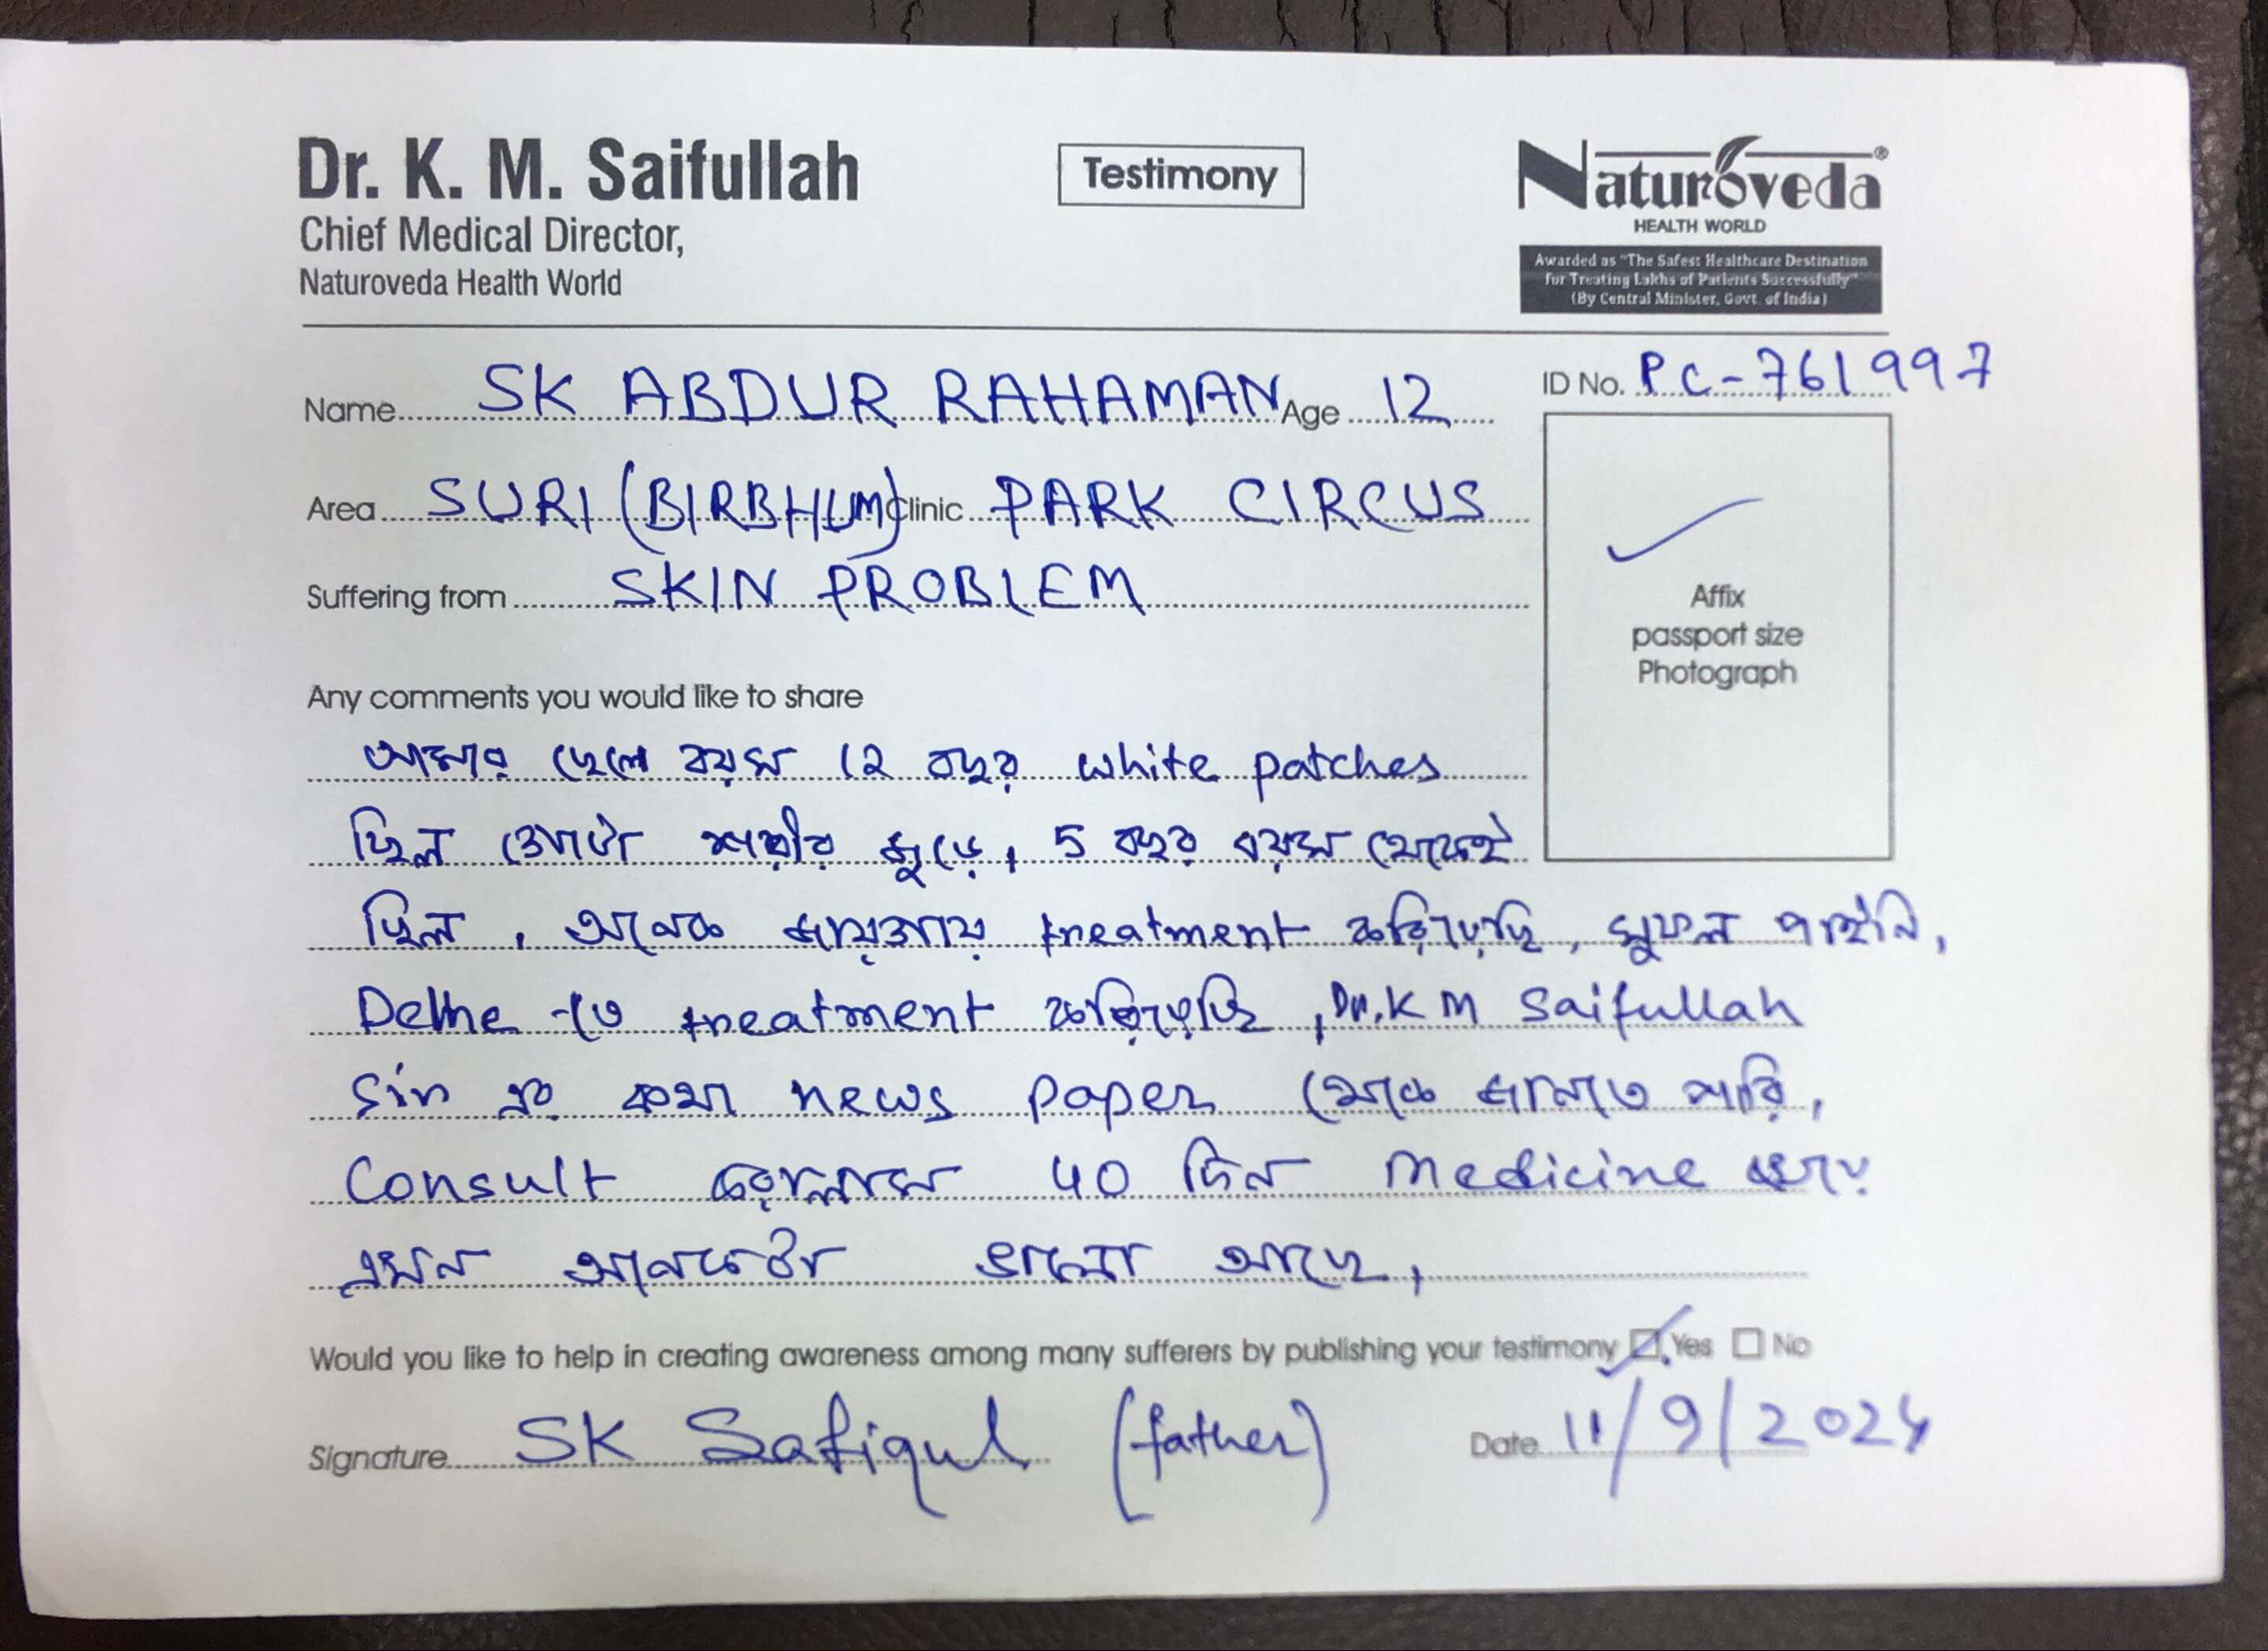 Dr. K. M. Saifullah
Chief Medical Director,
Naturoveda Health World
Testimony
Naturoveda®
HEALTH WORLD
Awarded as "The Safest Healthcare Destination
for Treating Lakhs of Patients Successfully"
(By Central Minister, Govt. of India)
Name SK ABDUR RAHAMAN Age 12
ID No. PC-761997
Area SURI (BIRBHUM) Clinic PARK CIRCUS
Suffering from SKIN PROBLEM
Affix
passport size
Photograph
Any comments you would like to share
আমার ছেলে বয়স 12 বছর white patches
ছিল গোটা শরীর জুড়ে, 5 বছর বয়স থেকেই
ছিল, অনেক জায়গায় treatment করিয়েছি, সুফল পাইনি,
Delhe -তে treatment করিয়েছি, Dr. K M Saifullah
Sir এর কথা news paper থেকে জানতে পারি,
Consult করলাম 40 দিন Medicine খেয়ে
এখন অনেকটা ভালো আছে,
Would you like to help in creating awareness among many sufferers by publishing your testimony Yes No
Signature SK Safiqul (father) Date 11/9/2024